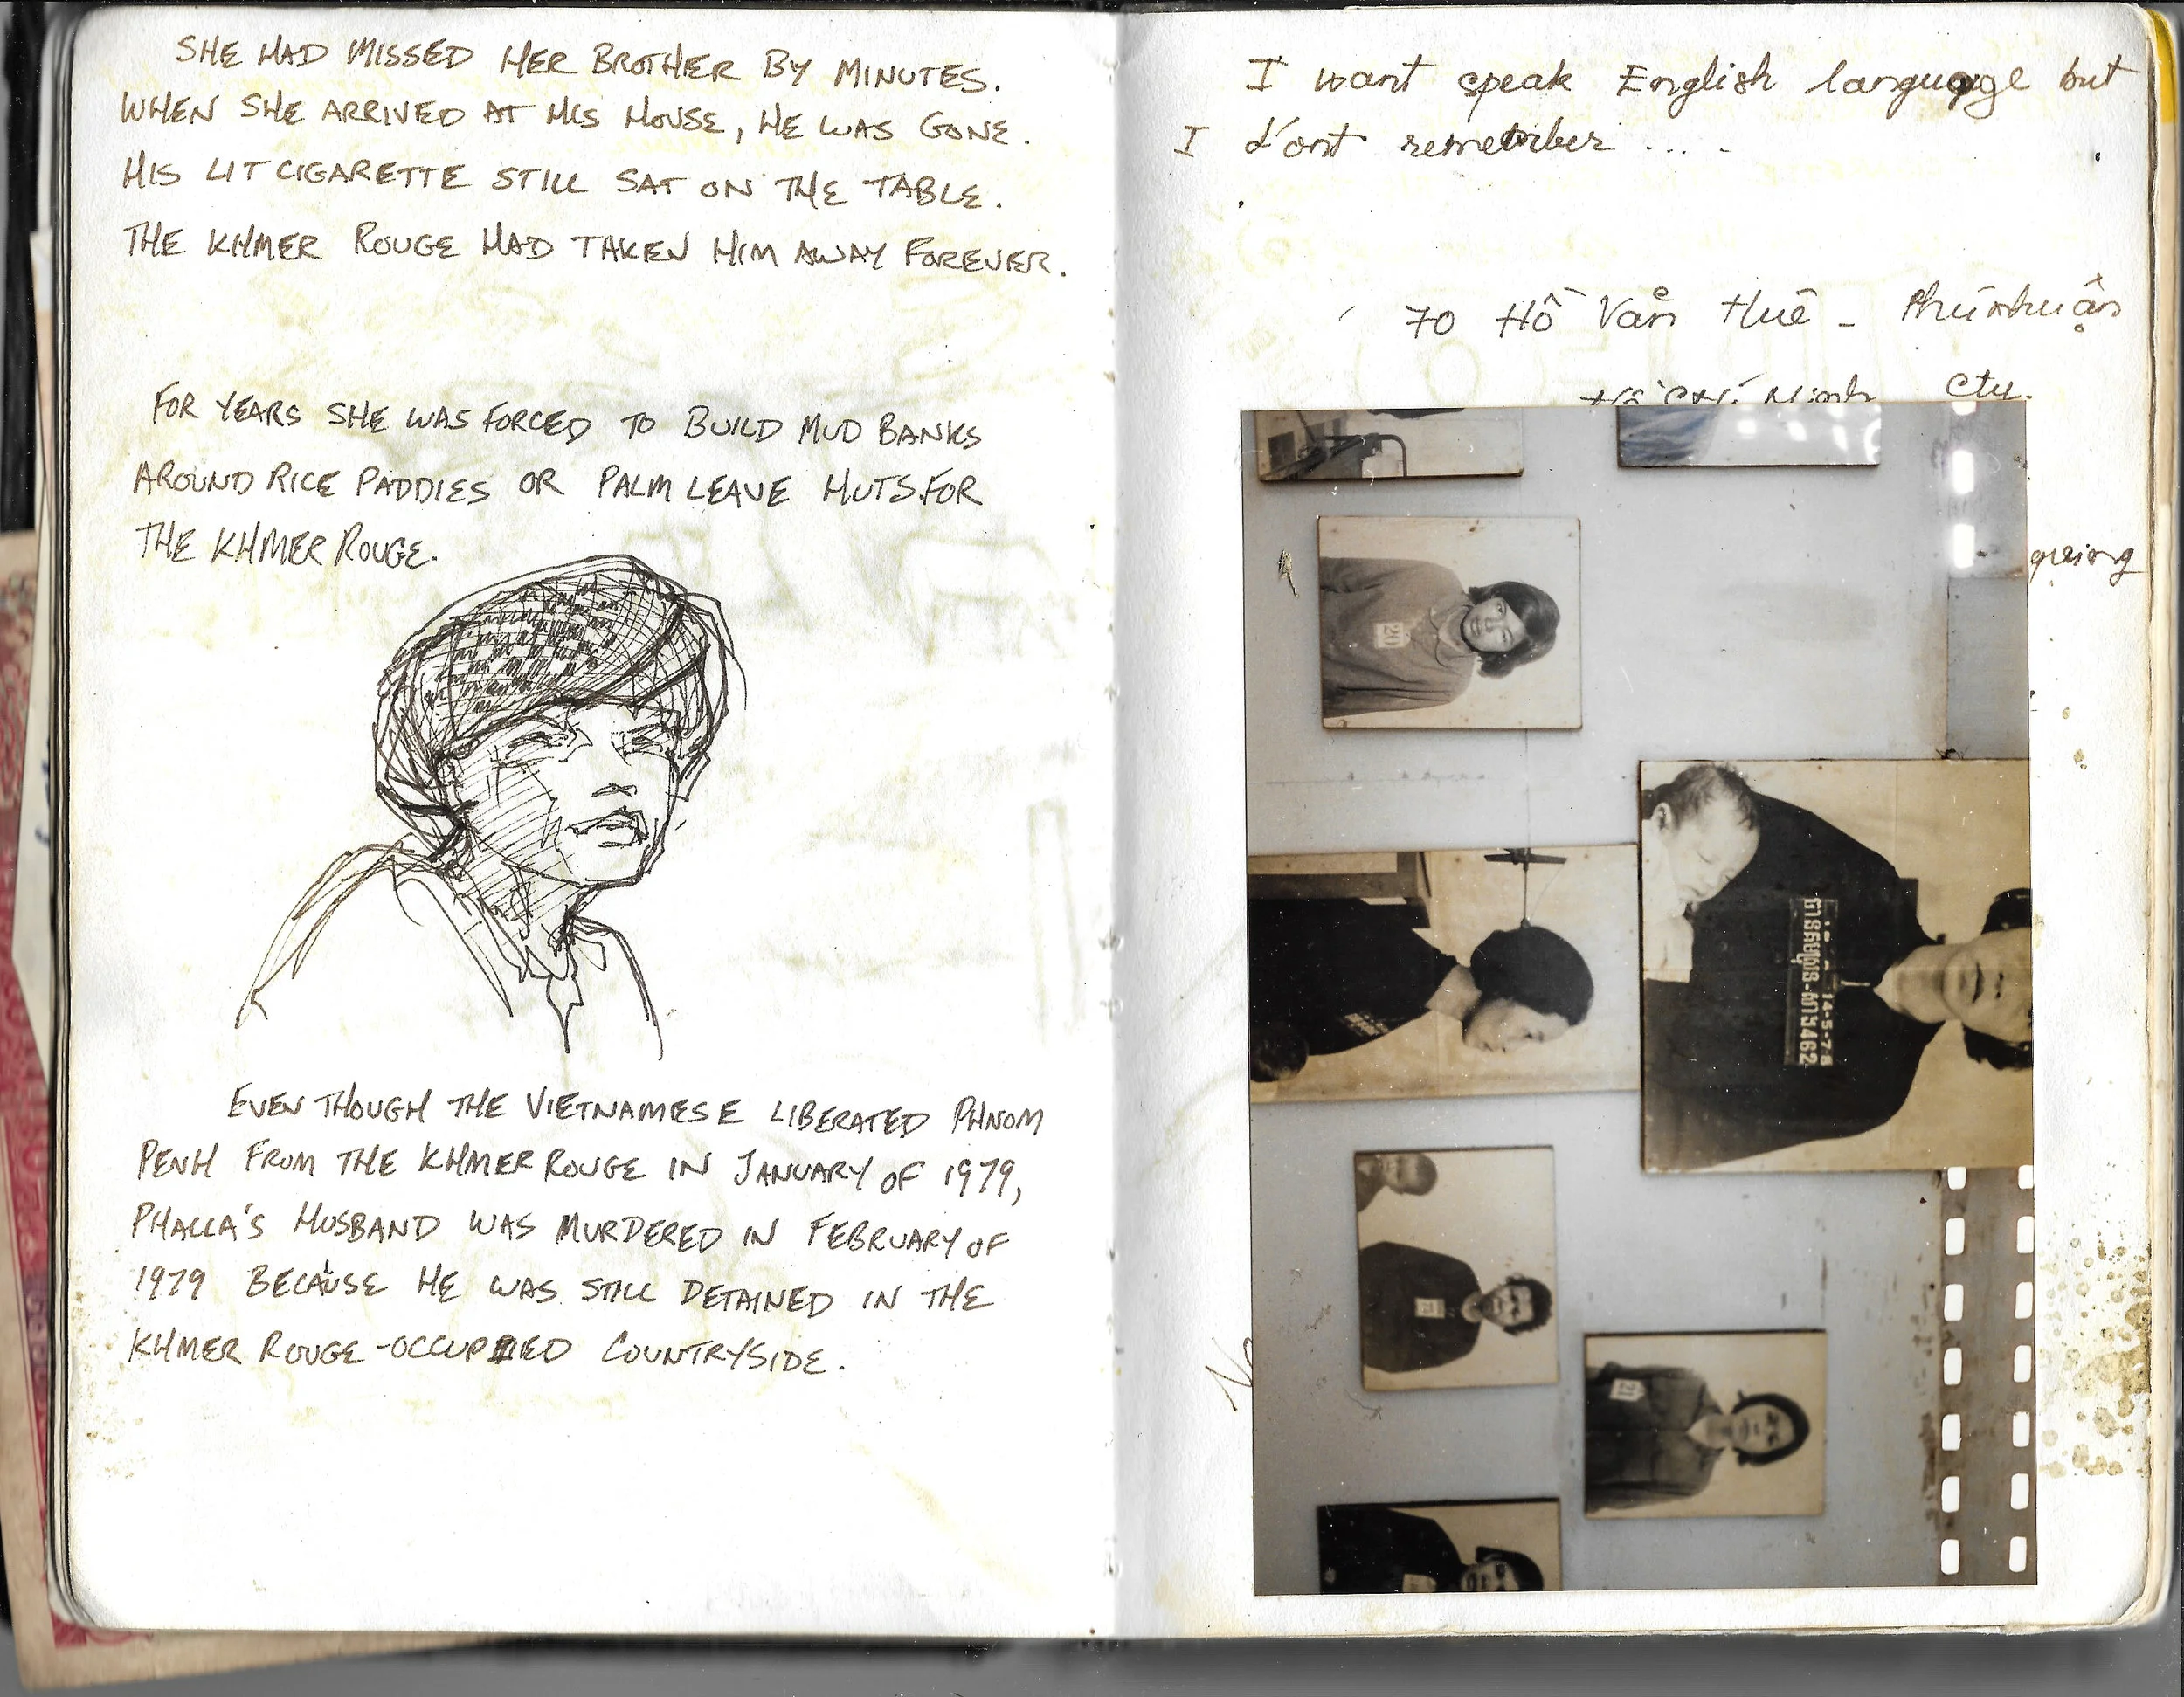 SHE HAD MISSED HER BROTHER BY MINUTES.
WHEN SHE ARRIVED AT HIS HOUSE, HE WAS GONE.
HIS LIT CIGARETTE STILL SAT ON THE TABLE.
THE KHMER ROUGE HAD TAKEN HIM AWAY FOREVER.
FOR YEARS SHE WAS FORCED TO BUILD MUD BANKS
AROUND RICE PADDIES OR PALM LEAVE HUTS FOR
THE KHMER ROUGE.
EVEN THOUGH THE VIETNAMESE LIBERATED PHNOM
PENH FROM THE KHMER ROUGE IN JANUARY OF 1979,
PHALLA'S HUSBAND WAS MURDERED IN FEBRUARY OF
1979 BECAUSE HE WAS STILL DETAINED IN THE
KHMER ROUGE-OCCUPIED COUNTRYSIDE.
I want speak English language but
I d'ont remember ....
70 Hồ Văn Huê - Phú Nhuận
Hồ Chí Minh City.
20
14-5-78
462
21